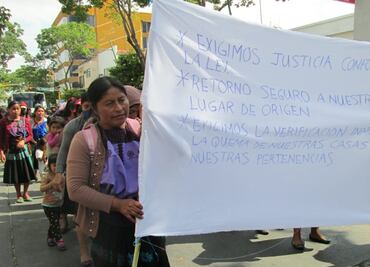 * EXIGIMOS JUSTICIA CONFO
LA LEY.
* RETORNO SEGURO A NUESTR
LUGAR DE ORIGEN
* EXIGIMOS LA VERIFICACIÓN
LA QUEMA DE NUESTRAS CASAS
NUESTRAS PERTENENCIAS